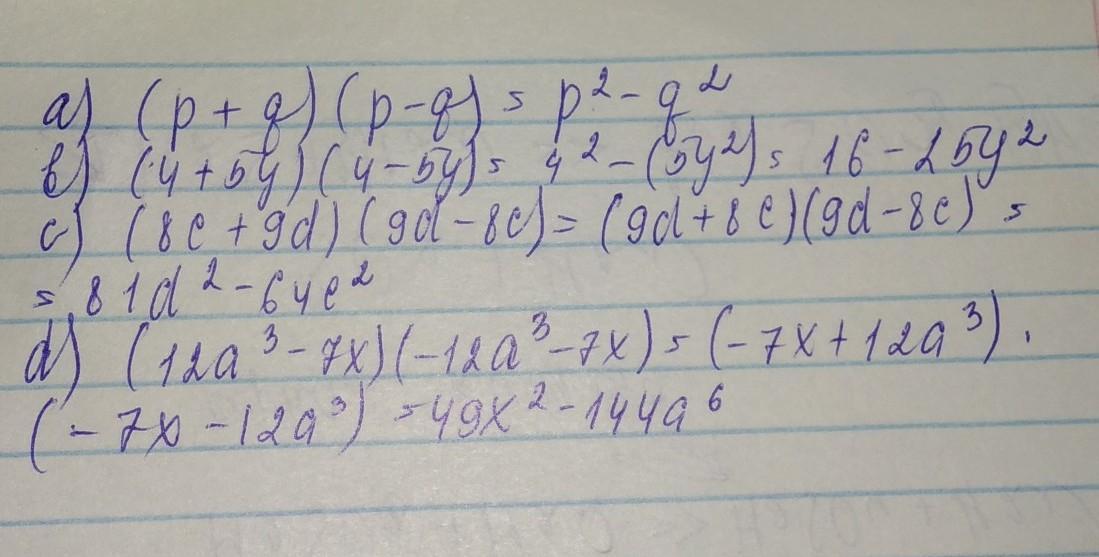 a) (p + q) (p - q) = p² - q²
b) (4 + 5y) (4 - 5y) = 4² - (5y²) = 16 - 25y²
c) (8c + 9d) (9d - 8c) = (9d + 8c) (9d - 8c) =
= 81d² - 64c²
d) (12a³ - 7x) (-12a³ - 7x) = (-7x + 12a³) ·
(-7x - 12a³) = 49x² - 144a⁶